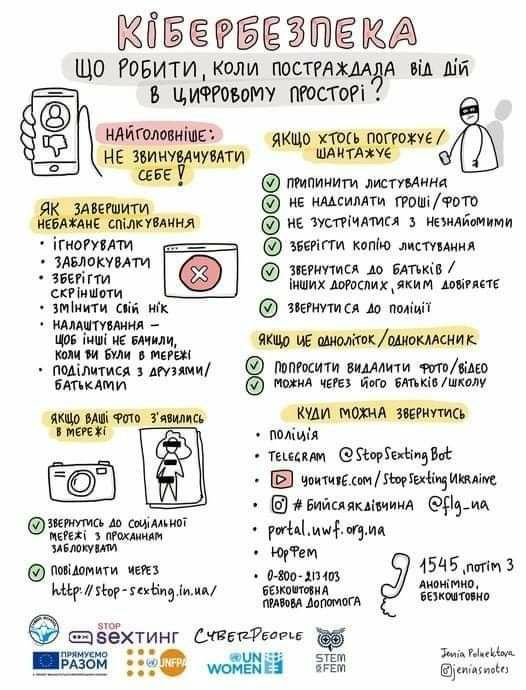 КІБЕРБЕЗПЕКА
ЩО РОБИТИ, КОЛИ ПОСТРАЖДАЛА ВІД ДІЙ
В ЦИФРОВОМУ ПРОСТОРІ?
НАЙГОЛОВНІШЕ:
НЕ ЗВИНУВАЧУВАТИ
СЕБЕ!
ЯК ЗАВЕРШИТИ
НЕБАЖАНЕ СПІЛКУВАННЯ
• ІГНОРУВАТИ
• ЗАБЛОКУВАТИ
• ЗБЕРІГТИ
СКРІНШОТИ
• ЗМІНИТИ СВІЙ НІК
• НАЛАШТУВАННЯ –
ЩОБ ІНШІ НЕ БАЧИЛИ,
КОЛИ ВИ БУЛИ В МЕРЕЖІ
• ПОДІЛИТИСЯ З ДРУЗЯМИ/
БАТЬКАМИ
ЯКЩО ХТОСЬ ПОГРОЖУЄ/
ШАНТАЖУЄ
ПРИПИНИТИ ЛИСТУВАННЯ
НЕ НАДСИЛАТИ ГРОШІ/ФОТО
НЕ ЗУСТРІЧАТИСЯ З НЕЗНАЙОМИМИ
ЗБЕРІГТИ КОПІЮ ЛИСТУВАННЯ
ЗВЕРНУТИСЯ ДО БАТЬКІВ /
ІНШИХ ДОРОСЛИХ, ЯКИМ ДОВІРЯЄТЕ
ЗВЕРНУТИСЯ ДО ПОЛІЦІЇ
ЯКЩО ЦЕ ОДНОЛІТОК/ОДНОКЛАСНИК
ПОПРОСИТИ ВИДАЛИТИ ФОТО/ВІДЕО
МОЖНА ЧЕРЕЗ ЙОГО БАТЬКІВ/ШКОЛУ
ЯКЩО ВАШІ ФОТО З'ЯВИЛИСЬ
В МЕРЕЖІ
ЗВЕРНУТИСЬ ДО СОЦІАЛЬНОЇ
МЕРЕЖІ З ПРОХАННЯМ
ЗАБЛОКУВАТИ
ПОВІДОМИТИ ЧЕРЕЗ
http://stop-sexting.in.ua/
КУДИ МОЖНА ЗВЕРНУТИСЬ
• ПОЛІЦІЯ
• TELEGRAM @StopSextingBot
• YOUTUBE.COM/StopSextingUkraine
• #БИЙСЯЯКДІВЧИНА @flg_ua
• portal.uwf.org.ua
• ЮрФем
• 0-800-213103
БЕЗКОШТОВНА
ПРАВОВА ДОПОМОГА
1545, потім 3
АНОНІМНО,
БЕЗКОШТОВНО
STOP
sexтинг
CYBERPEOPLE
ПРЯМУЄМО
РАЗОМ
UNFPA
UN
WOMEN
STEM
&FEM
Jenia Poluektova
@jeniasnotes